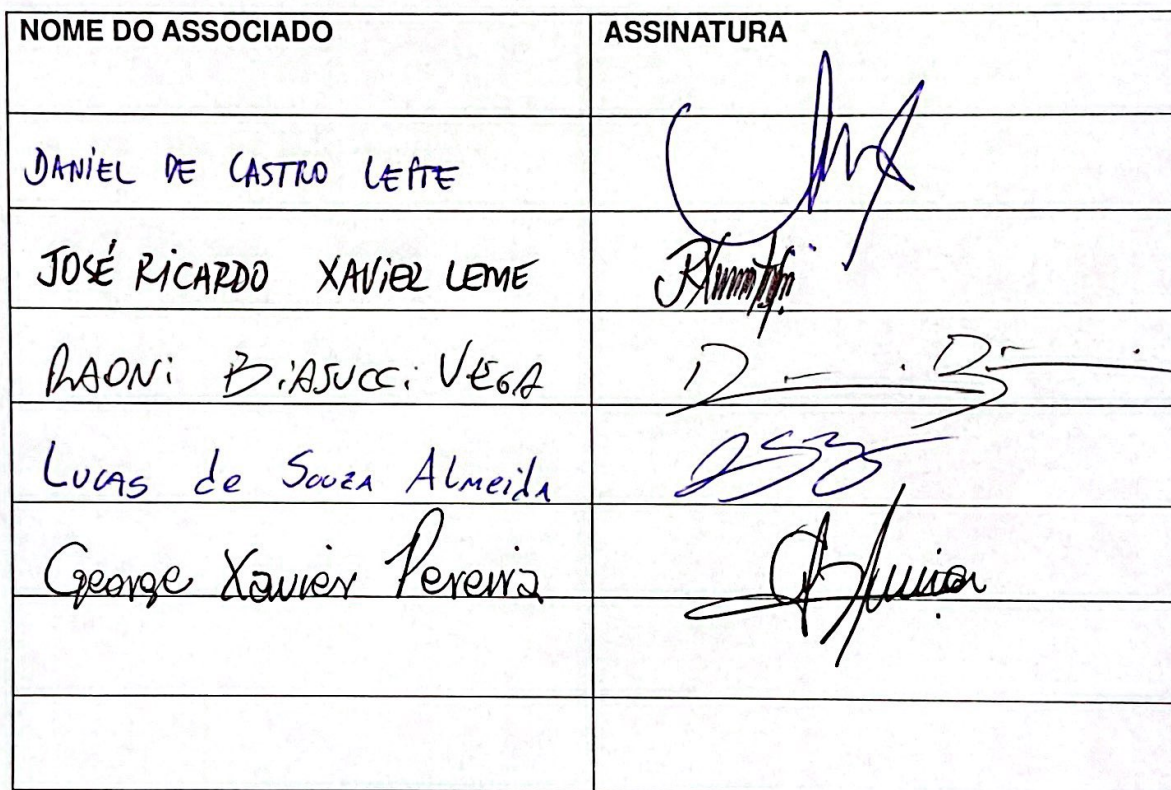 NOME DO ASSOCIADO ASSINATURA
DANIEL DE CASTRO LEITE
JOSÉ RICARDO XAVIER LEME
RAONI BIASUCCI VEGA
Lucas de Souza Almeida
George Xavier Pereira